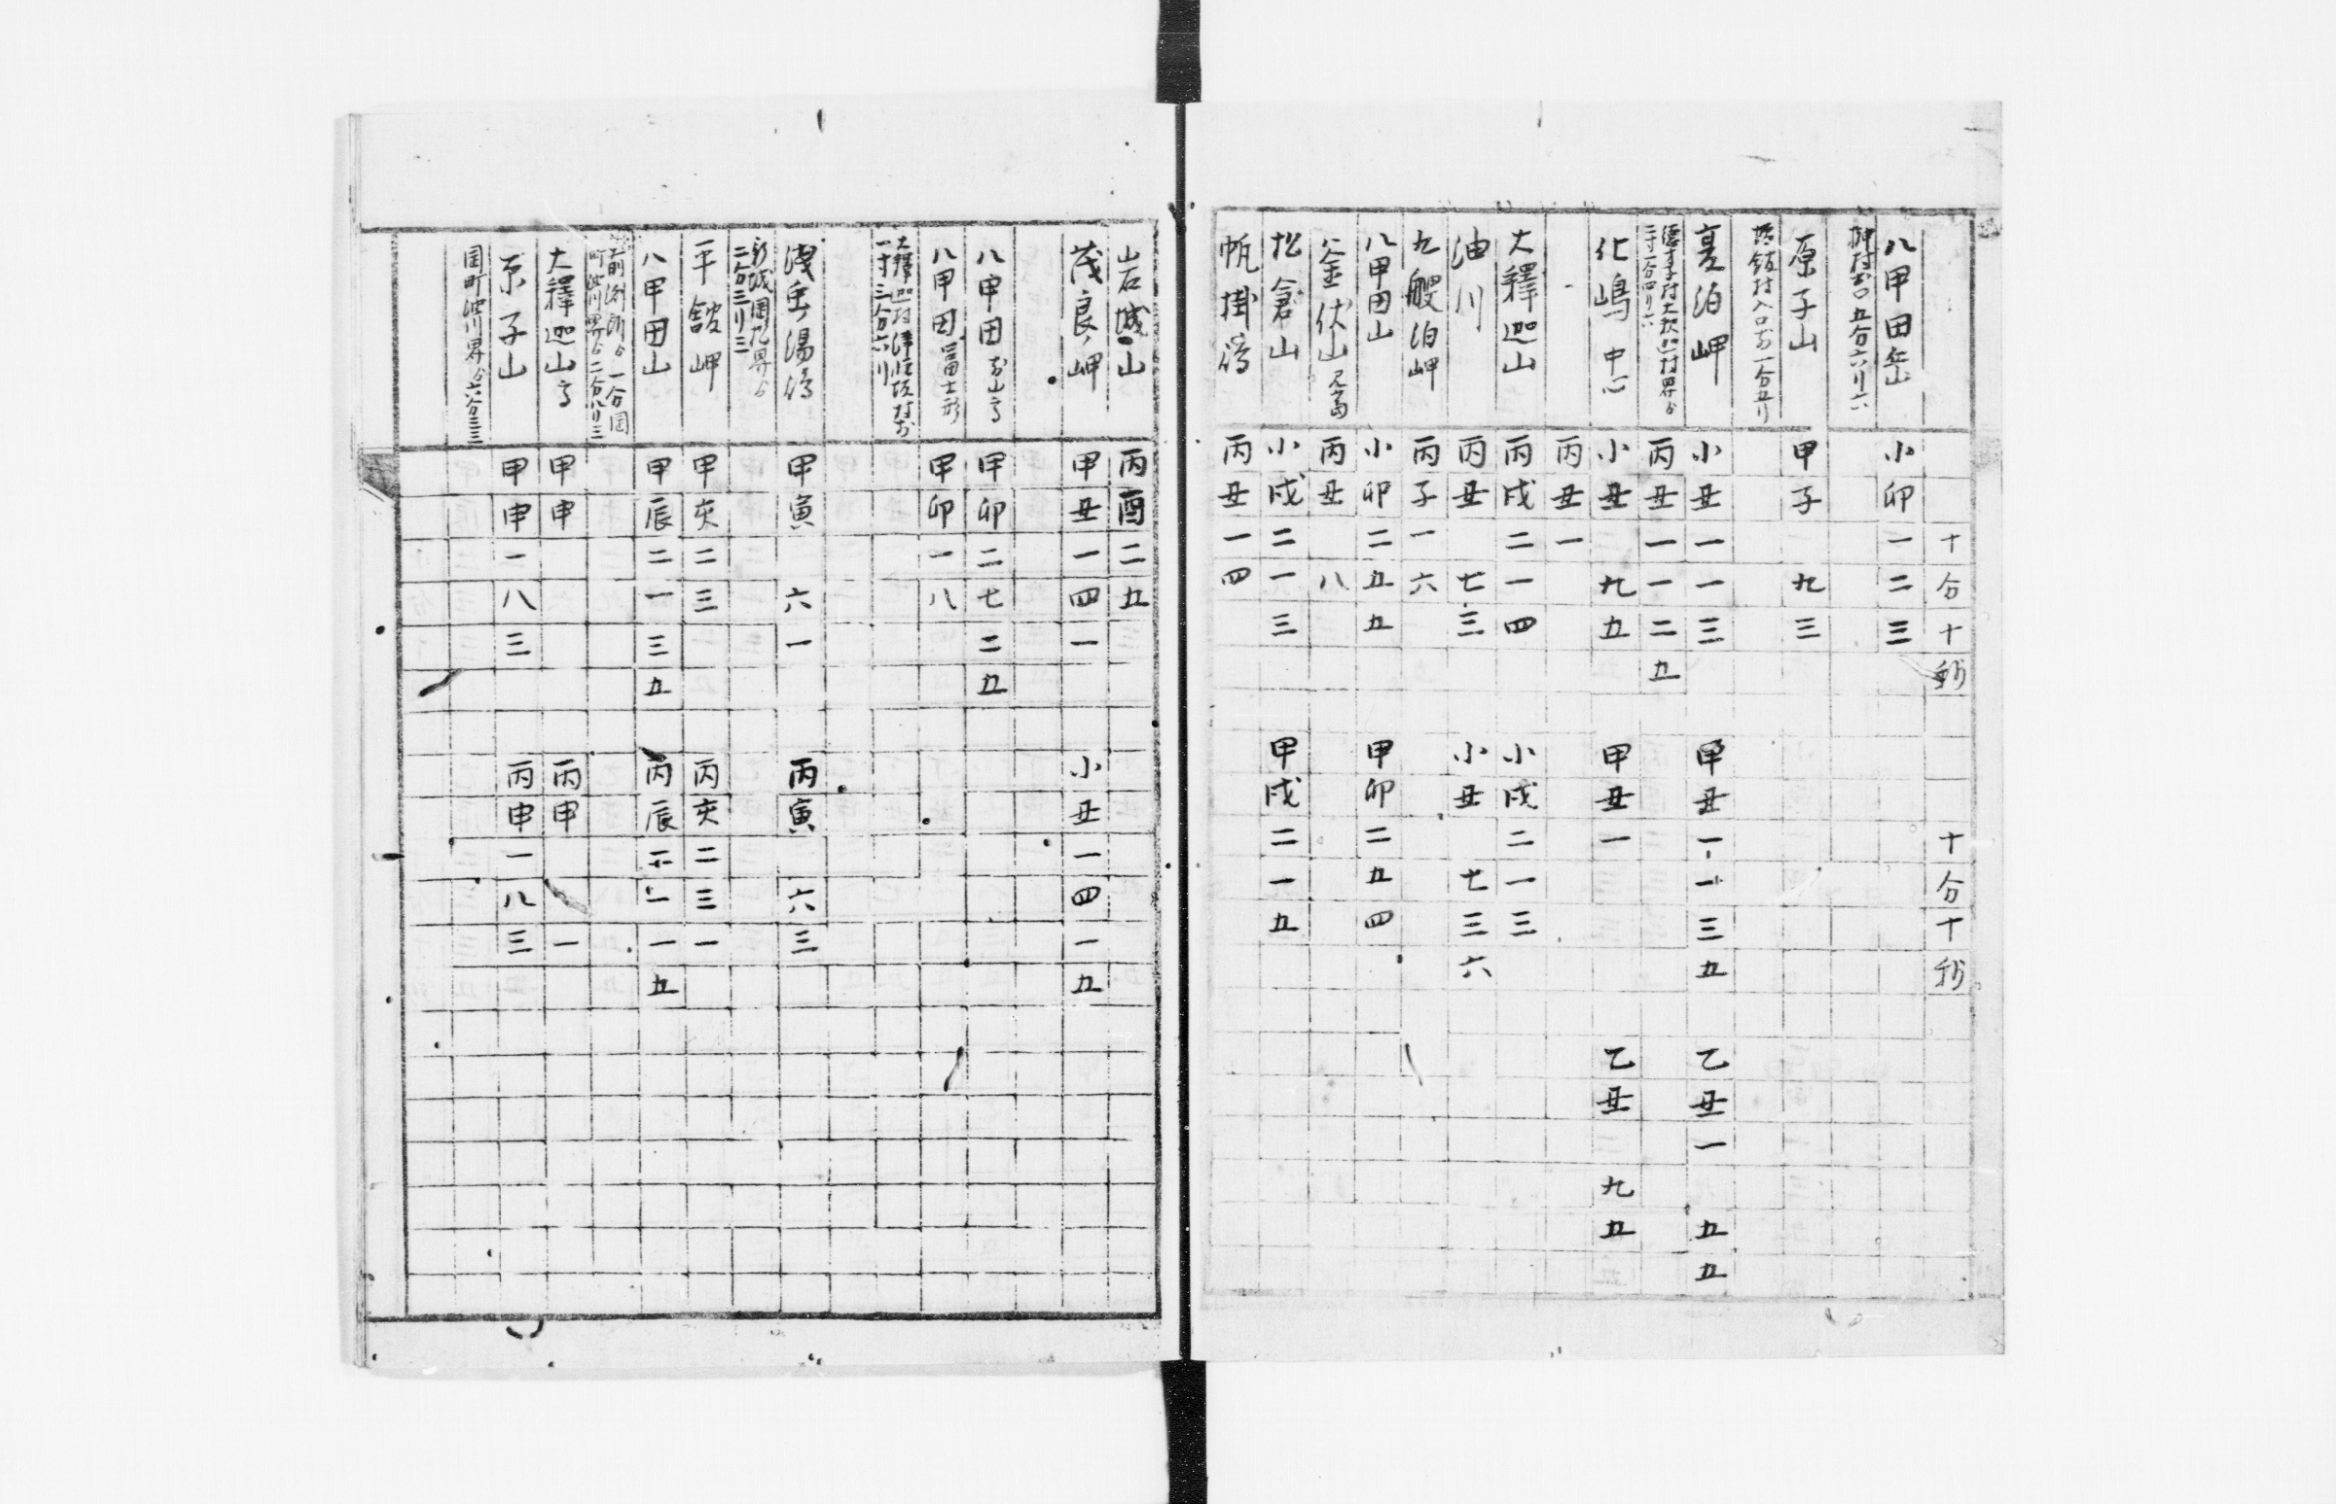 十分十秒 十分十秒
八甲田岳 小卯一二三
五分六リ六
原子山 甲子 九三
村入口 一分五リ
夏泊岬 小丑一一三 甲丑一一三五 乙丑一 五五
丙丑一一二五
化嶋 中心 小丑 九五 甲丑一 乙丑 九五
丙丑一
大釋迦山 丙戌二一四 小戌二一三
油川 丙丑 七三 小丑 七三六
九艘泊岬 丙子一六
八甲田山 小卯二五五 甲卯二五四
釜伏山 丙丑 八
松倉山 小戌二一三 甲戌二一五
帆掛 丙丑一四
岩城山 丙酉二五
茂良岬 甲丑一四一 小丑一四一五
八甲田 甲卯二七二五
八甲田 富士形 甲卯一八
大釋迦村津軽坂村
一寸三分六リ
浅虫湯 甲寅 六一 丙寅 六三
二分三リ三
平舘岬 甲亥二三 丙亥二三一
八甲田山 甲辰二一三五 丙辰二一一五
一分 二分八リ三
大釋迦山 甲申 丙申 一
原子山 甲申一八三 丙申一八三
油川界 六分三三